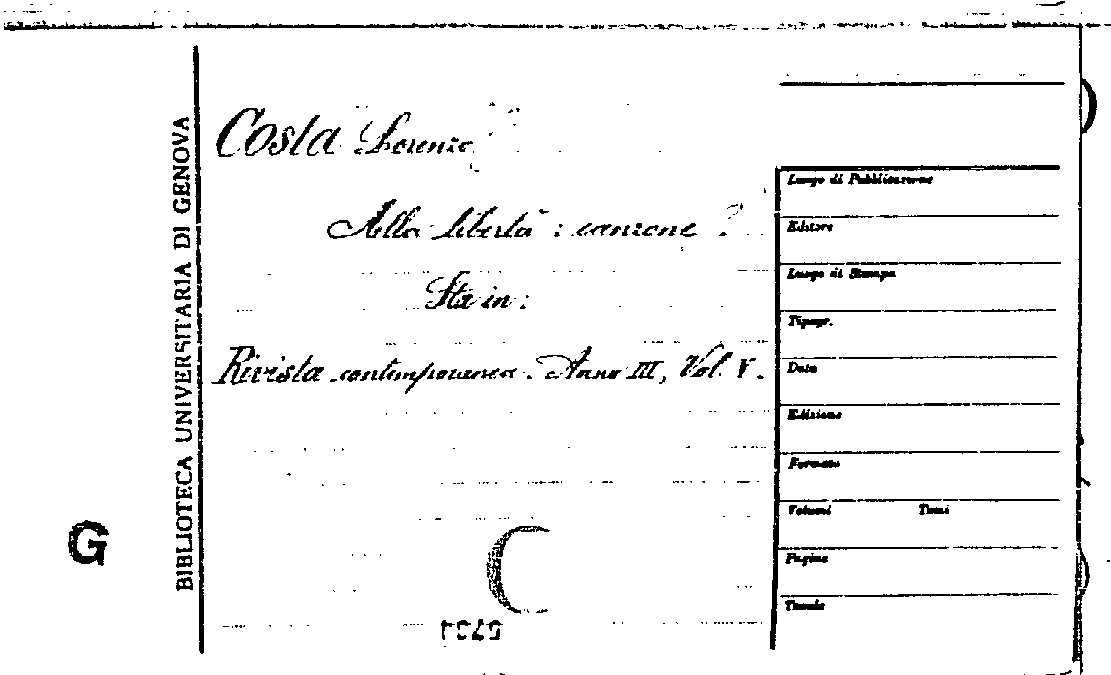 Costa Lorenzo
Alla libertà : canzone
Sta in :
Rivista contemporanea. Anno III, Vol. V.
BIBLIOTECA UNIVERSITARIA DI GENOVA
G
Luogo di Pubblicazione
Editore
Luogo di Stampa
Tipogr.
Data
Edizione
Formato
Volumi Tomi
Pagine
Tavole